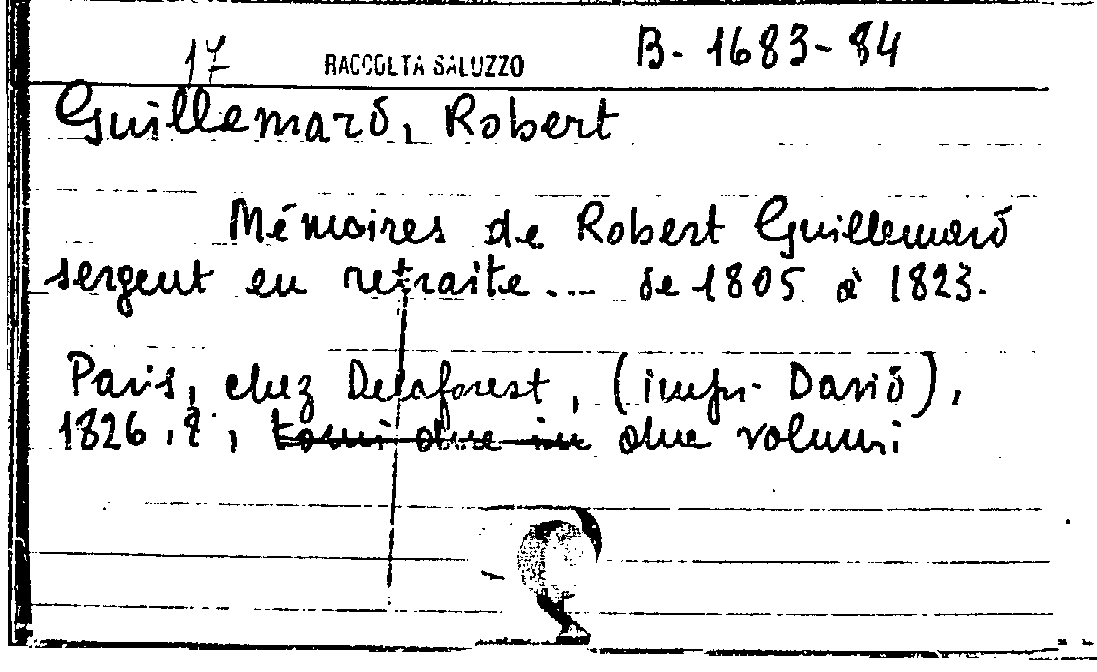 17 RACCOLTA SALUZZO B- 1683-84
Guillemard, Robert
Mémoires de Robert Guillemard
sergent en retraite ... de 1805 à 1823.
Paris, chez Delaforest, (impr. David),
1826, 8°, tomi due in due volumi